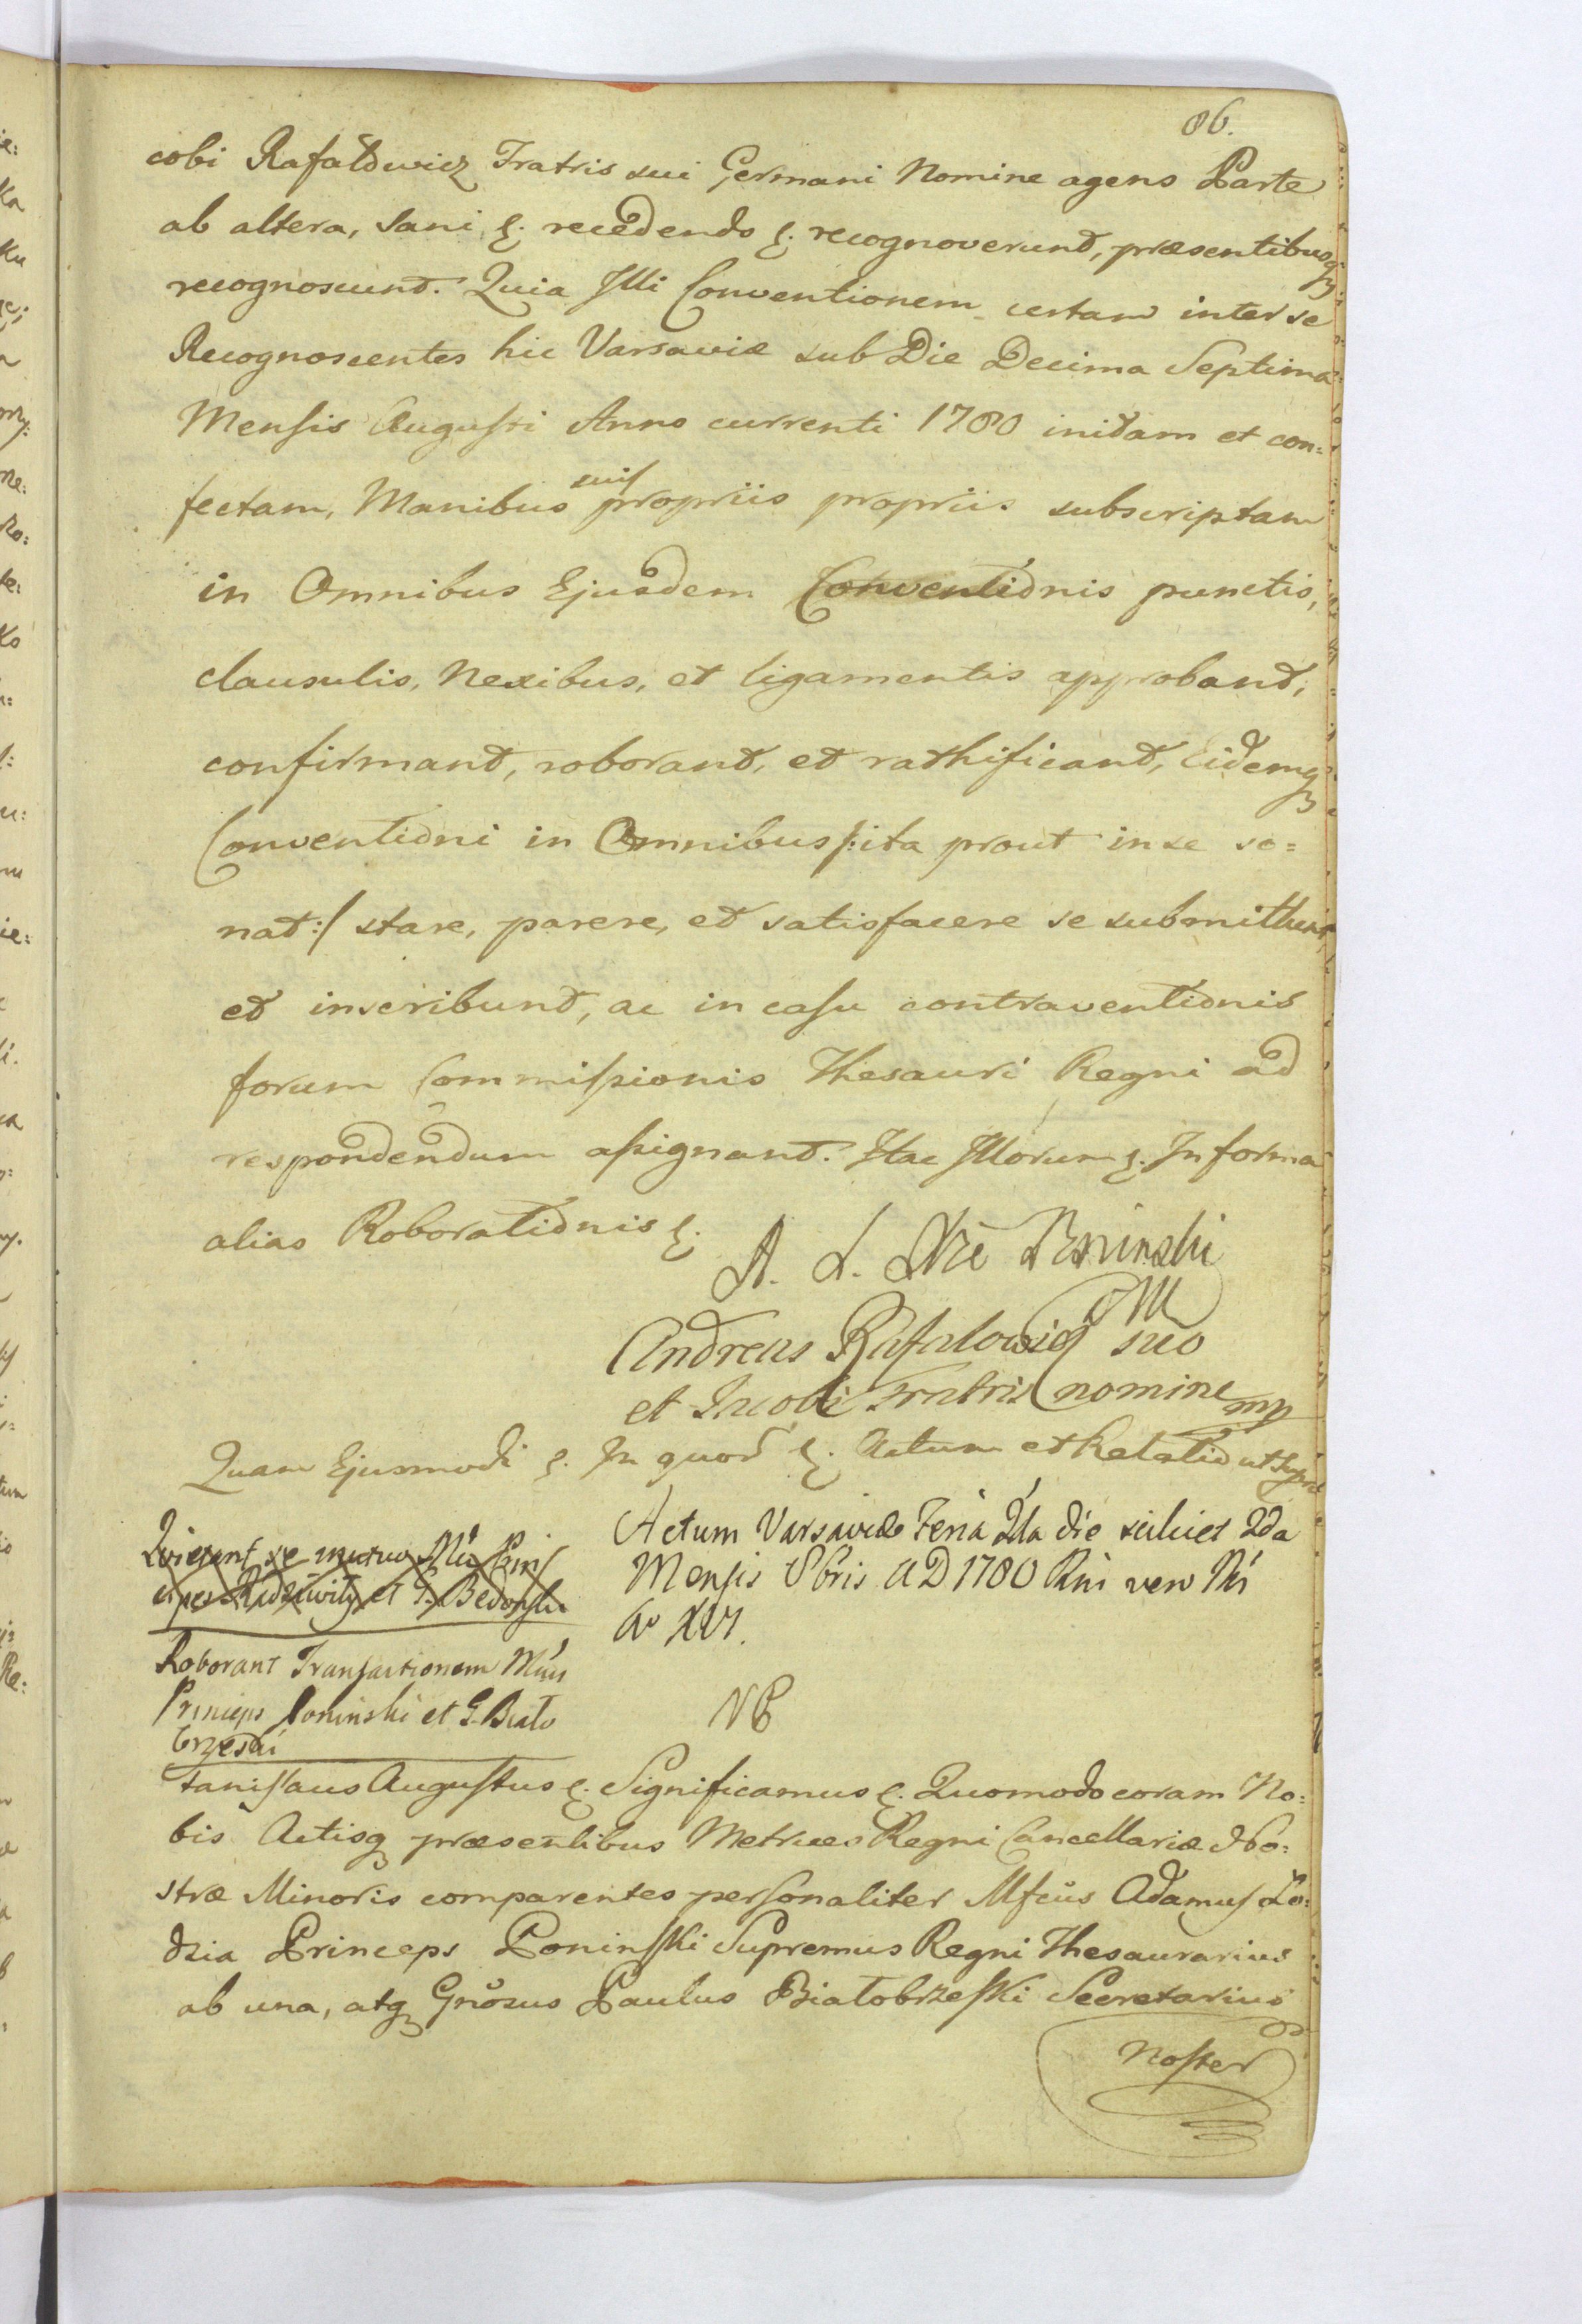 86.
cobi Rafałowicz Fratris sui Germani Nomine agens Parte
ab altera, Sani &. recedendo &. recognoverunt, præsentibusq
recognoscunt. Quia Illi Conventionem certam inter se
Recognoscentes hic Varsaviæ sub Die Decima Septima
Mensis Augusti Anno currenti 1780 initam et con=
fectam, Manibus suis propriis propriis subscriptam
in Omnibus Ejusdem Conventionis punctis,
clausulis, Nexibus, et ligamentis approbant,
confirmant, roborant, et rathificant, Eidemq
Conventioni in Omnibus /: ita prout in se so=
nat :/ stare, parere, et satisfacere se submittunt
et inscribunt, ac in casu contraventionis
forum Commissionis Thesauri Regni ad
respondendum assignant. Hac Illorum &. In forma
alias Roborationis &.
A. L. Xże Poninski
Andreas Rafalowicz suo
et Jacobi Fratris nomine mp
Quam Ejusmodi &. In quor &. Actum et Relatio ut supra
Actum Varsaviæ Feria 2da die scilicet 2da
Mensis 8bris A D 1780 Rni vero Nri
Ao XVI.
Quietant se mutuo Mci Prin
ceps Radziwiły et G. Bedonski
Roborant Transactionem Mcus
Princeps Poninski et G. Biało
brzeski
NB
tanislaus Augustus &. Significamus &. Quomodo coram No=
bis Actisq præsentibus Metrices Regni Cancellariæ No=
stræ Minoris comparentes personaliter Mfcus Adamus Ło=
dzia Princeps Poninski Supremus Regni Thesaurarius
ab una, atq Gnosus Paulus Białobrzeski Secretarius
Noster